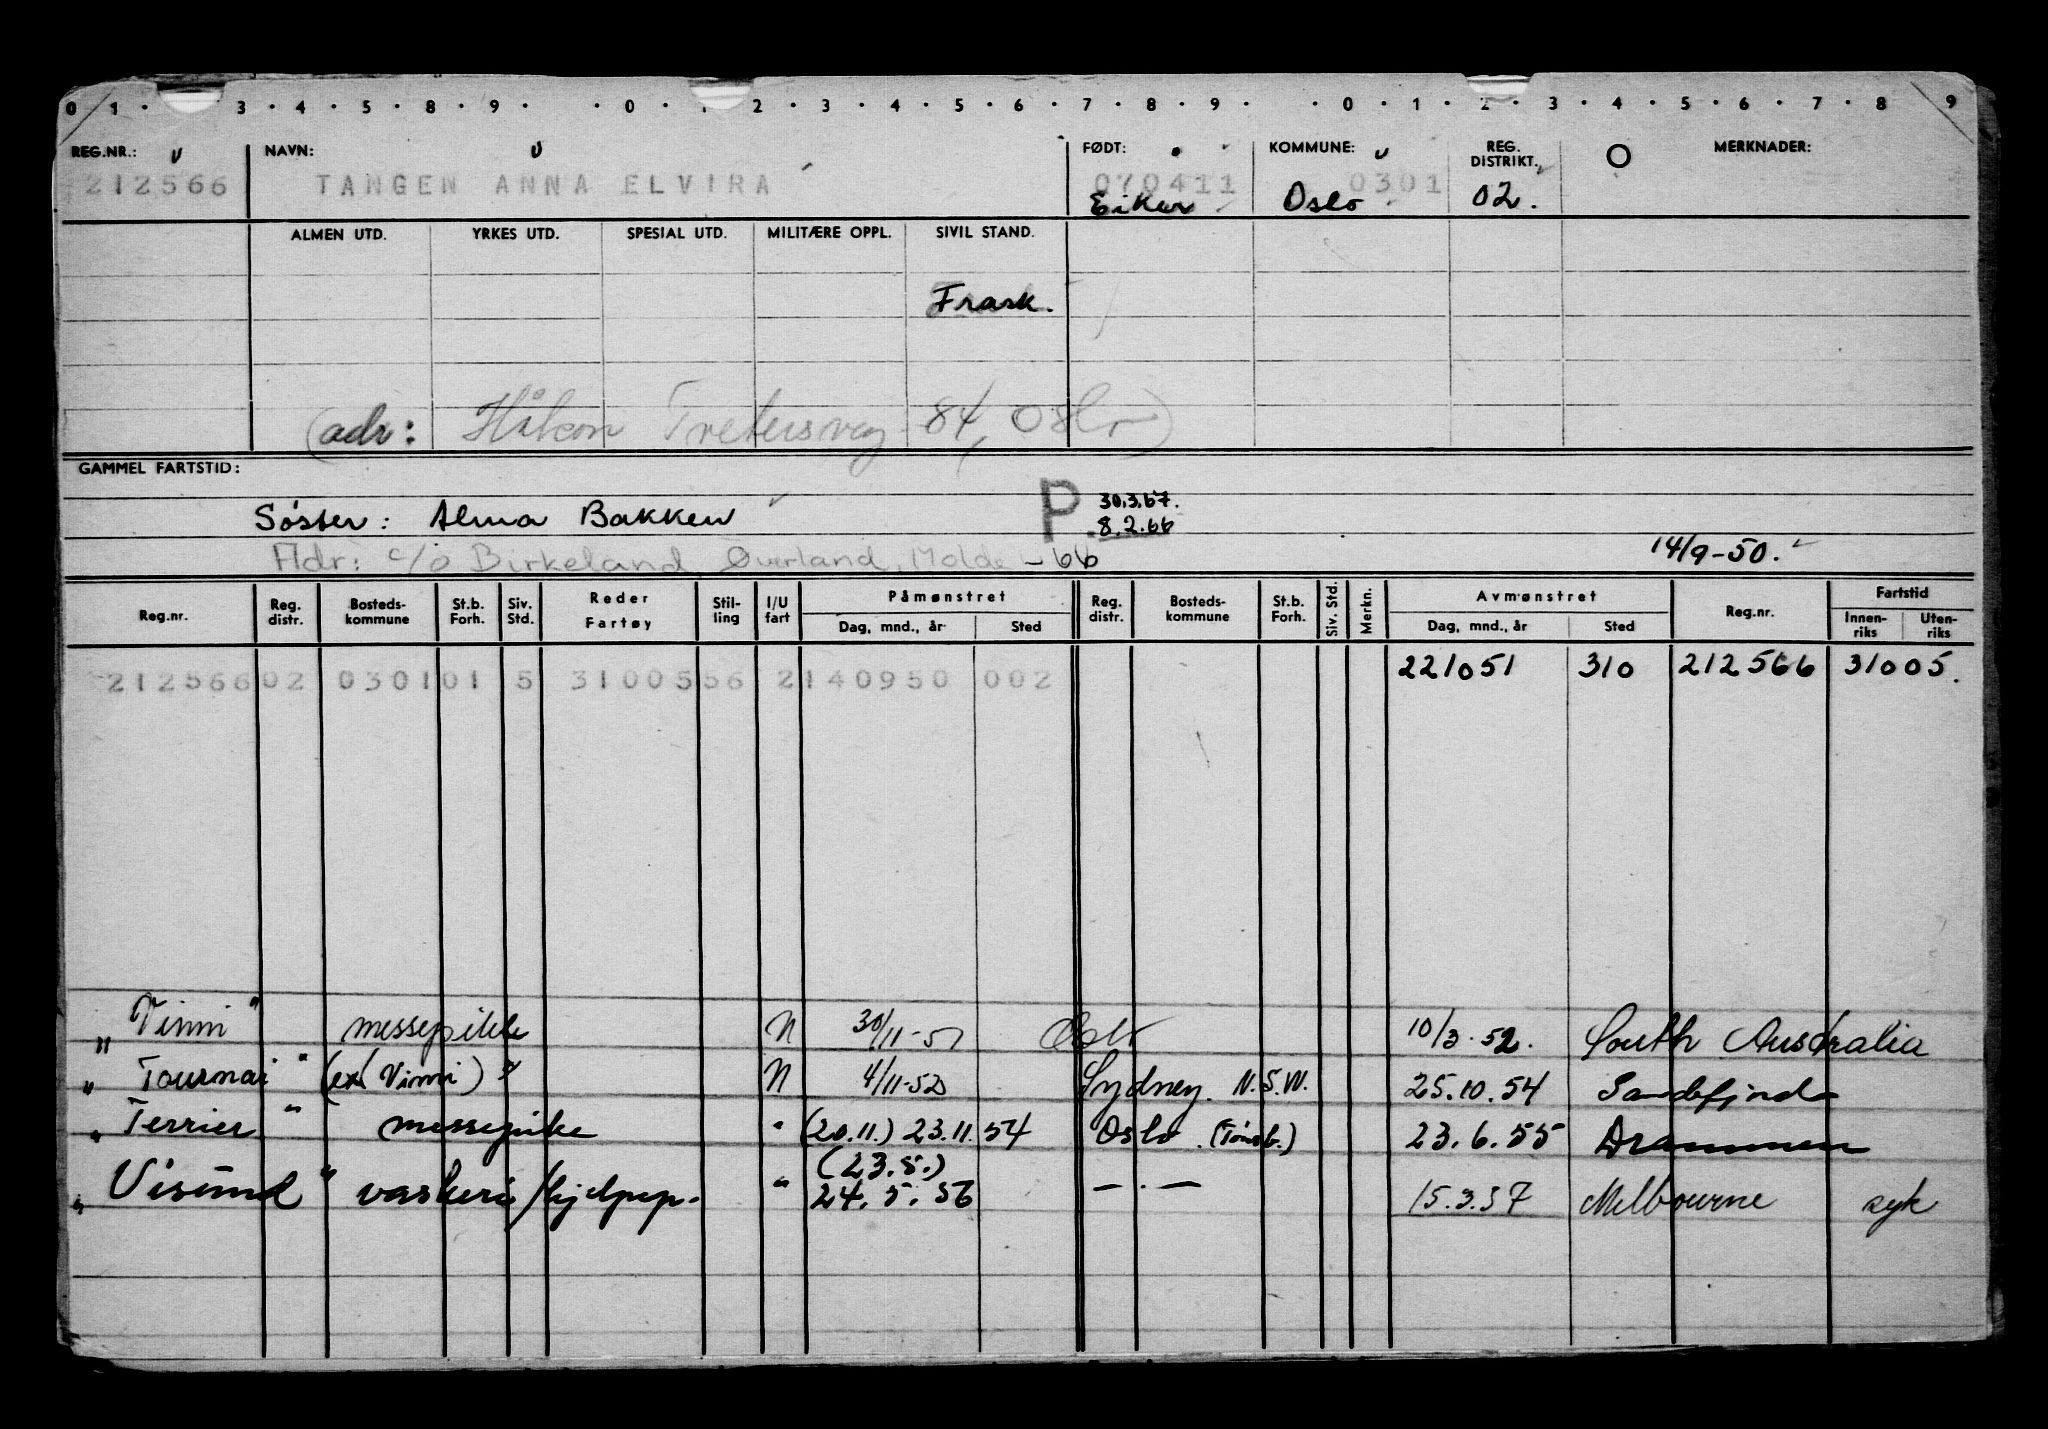 0 1 · 3 · 4 · 5 · 8 · 9 · · 0 · 1 2 · 3 · 4 · 5 · 6 · 7 · 8 · 9 · · 0 · 1 · 2 · 3 · 4 · 5 · 6 · 7 · 8 9
REG.NR.: NAVN: FØDT: KOMMUNE: REG. DISTRIKT. O MERKNADER:
212566 TANGEN ANNA ELVIRA 070411 0301
Eiker Oslo 02.
ALMEN UTD. YRKES UTD. SPESIAL UTD. MILITÆRE OPPL. SIVIL STAND.
Frask.
(adr: Håkon Tvetersveg 84, Oslo)
GAMMEL FARTSTID:
P 30.3.67.
Søster: Alma Bakken 8.2.66
Adr: c/o Birkeland, Øverland, Molde -66 14/9-50.
Reg.nr. Reg. distr. Bosteds-kommune St.b. Forh. Siv. Std. Reder Fartøy Stil-ling I/U fart Påmønstret Reg. distr. Bosteds-kommune St.b. Forh. Siv. Std. Merkn. Avmønstret Reg.nr. Fartstid
Dag, mnd., år Sted Dag, mnd., år Sted Innen-riks Uten-riks
212566 02 0301 01 5 31005 56 2 140950 002 221051 310 212566 31005.
"Vinni" messepike N 30/11-51 Oslo 10/3.52. South Australia
"Tournai" (ex Vinni) N 4/11-52 Sydney N.S.W. 25.10.54 Sandefjord
"Terrier" messepike " (20.11.) 23.11.54 Oslo. (Tönsb.) 23.6.55 Drammen
(23.5.)
"Visund" vaskeri/hjelpep. " 24.5.56 — . — 15.3.57 Melbourne syk